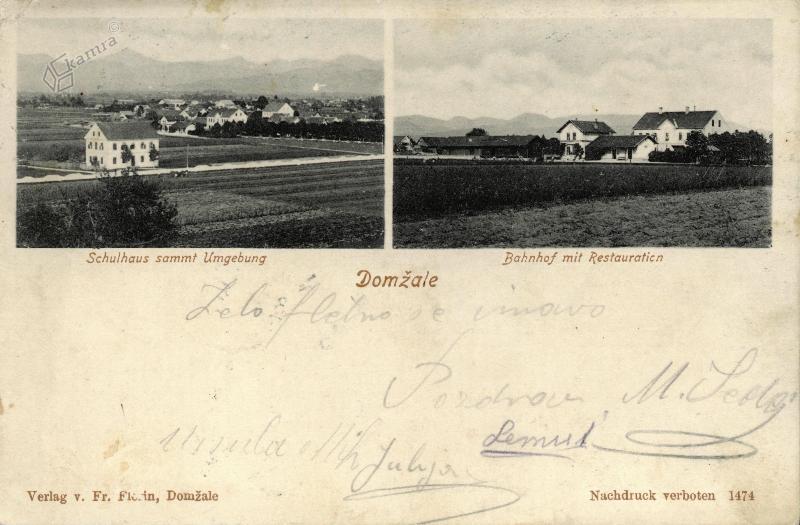 kamra
Schulhaus sammt Umgebung
Bahnhof mit Restauration
Domžale
Zelo fletno se imavo
Pozdrav M.
Ursula
Julija
Verlag v. Fr. Florin, Domžale
Nachdruck verboten 1474